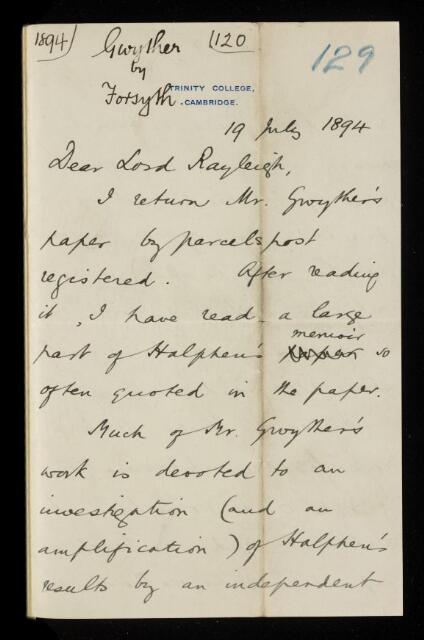 1894
Gwyther
by
Forsyth
120
129
TRINITY COLLEGE,
CAMBRIDGE.
19 July 1894
Dear Lord Rayleigh,
I return Mr. Gwyther's
paper by parcels post
registered. After reading
it, I have read a large
memoir
part of Halphen's so
often quoted in the paper.
Much of Mr. Gwyther's
work is devoted to an
investigation (and an
amplification) of Halphen's
results by an independent